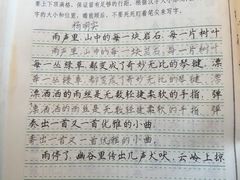 要上下顶满格，保证留有足够的行距。
字的大小和位置，谱前顾后，不要死死盯着笔尖来写字。
杨明实
雨声里，山中的每一块岩石、每一片树叶
雨声里，山中的每一块岩石、每一片树叶
每一丛绿草，都变成了奇妙无比的琴键，漂
每一丛绿草，都变成了奇妙无比的琴键，漂
漂洒洒的雨丝是无数轻捷柔软的手指，弹
漂洒洒的雨丝是无数轻捷柔软的手指，弹
奏出一首又一首优雅的小曲，
奏出一首又一首优雅的小曲，
雨停了，幽谷里传出几声犬吠，云岭上掠